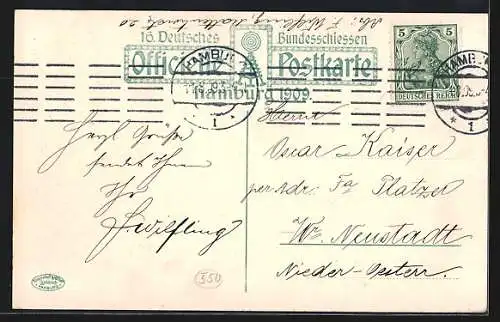 16. Deutsches Bundesschiessen
Officielle Postkarte
Hamburg 1909.
HAMBURG
1
5 5
DEUTSCHES REICH
HAMBURG
* 1
Herzl. Grüße
sendet Ihnen
Ihr
F. Wilfling
Herrn
Oscar Kaiser
per Adr. Fa Platzer
Wr. Neustadt
Nieder-Oesterr.
550